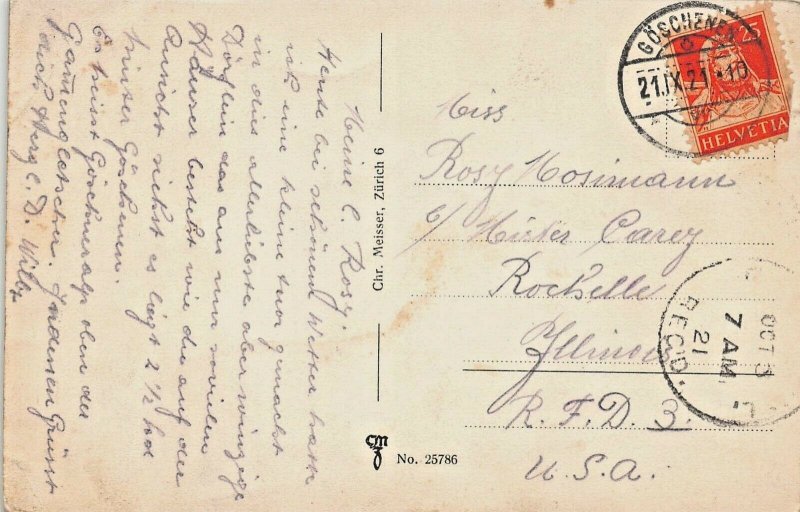 Meine l. Rosy!
Heute bei schönem Wetter hatte
ich eine kleine tour gemacht
in dies allerliebste aber winzige
Dörflein das aus nur sovielen
Häuser besteht wie du auf der
Ansicht siehst es liegt 2 1/2 Std
hinter Göschenen.
Es heisst Göscheneralp oben der
Herzl. D. Willy
Chr. Meisser, Zürich 6
cm
No. 25786
GÖSCHENEN
21.IX.21
25
HELVETIA
Miss
Rosy Mosimann
c/o Mister Carey
Rochelle
Illinois
R. F. D. 3.
U. S. A.
OCT 3
7 AM.
21
REC'D.